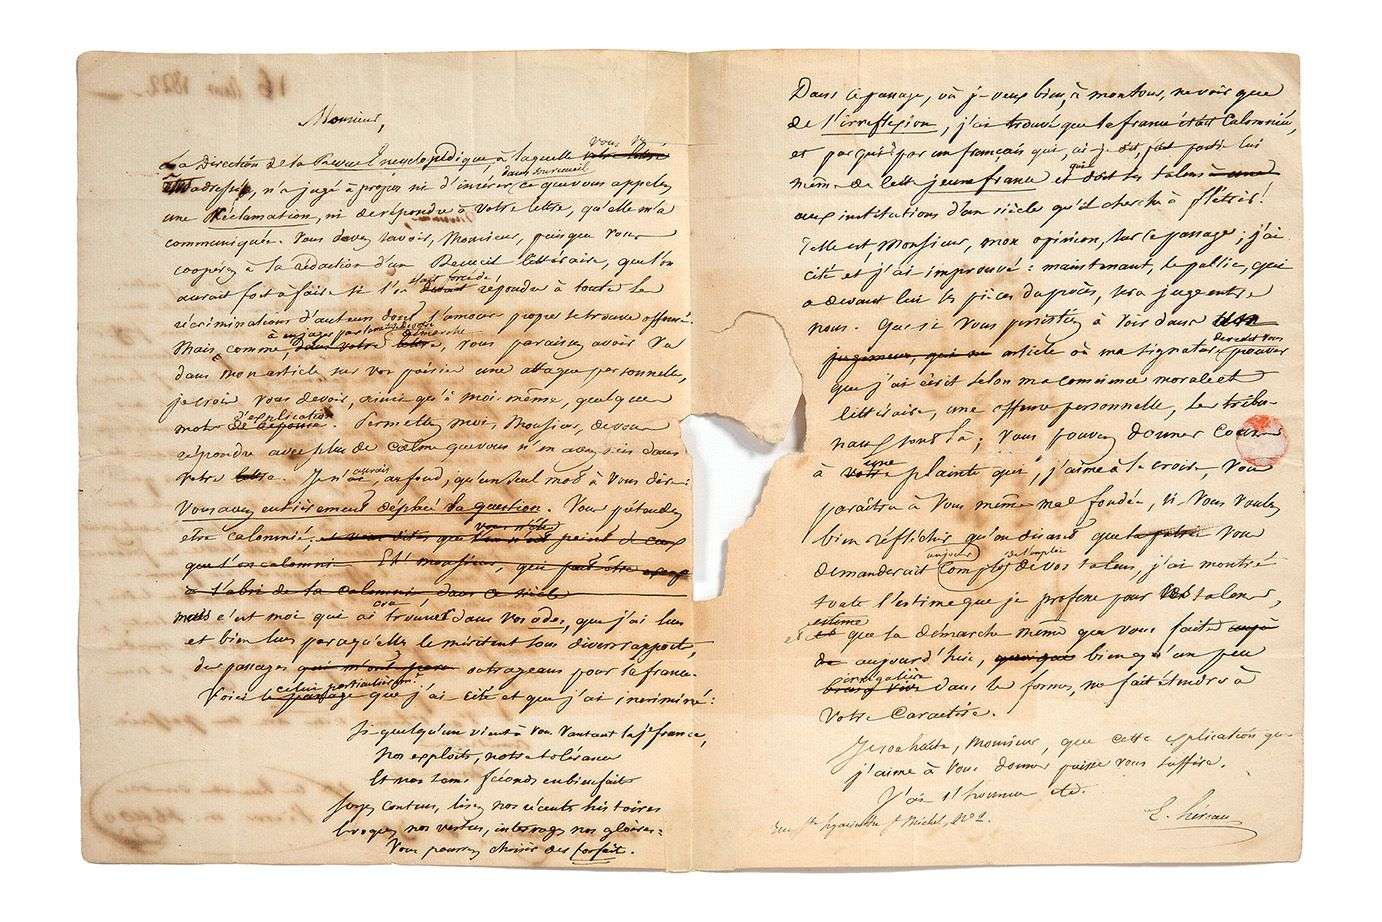 Monsieur,
La Direction de la Revue Encyclopédique, à laquelle vous
adressée, n'a jugé à propos ni d'insérer dans son recueil ce que vous appelez
une Réclamation, ni de répondre à votre lettre, qu'elle m'a
communiquée. Vous devez savoir, Monsieur, puisque vous
coopérez à la rédaction d'un Recueil littéraire, que l'on
aurait fort à faire si l'on était forcé de répondre à toutes les
récriminations d'auteurs dont l'amour propre se trouve offensé.
Mais, comme, démarche, vous paraissez avoir vu
dans mon article sur vos poésies une attaque personnelle,
je crois vous devoir, ainsi qu'à moi-même, quelques
mots d'explication. Permettez moi, Monsieur, de vous
répondre avec plus de calme que vous n'en avez mis dans
votre lettre. Je n'aurais, au fond, qu'un seul mot à vous dire:
Vous avez entièrement déplacé la question. Vous prétendez
être calomnié,
que l'on calomnie Eh! monsieur, que peut être
à l'abri de la calomnie dans ce siècle
mais c'est moi qui ai cru trouver dans vos odes, que j'ai lues
et bien lues parcequ'elles le méritent sous divers rapports,
des passages outrageans pour la france.
Voici celui particulièrement que j'ai cité et que j'ai incriminé:
Si quelqu'un vient à vous vantant la jne france,
Nos exploits, notre tolérance
Et nos tems féconds en bienfaits
Soyez contens, lisez nos récentes histoires
Evoquez nos vertus, interrogez nos gloires:
Vous pourrez choisir des forfaits.
Dans ce passage, où je veux bien, à mon tour, ne voir que
de l'irréflexion, j'ai trouvé que la france était calomniée,
et par qui? par un français qui, ai-je dit, fait partie lui
même de cette jeune france et qui doit ses talens
aux institutions d'un siècle qu'il cherche à flétrir!
Telle est, Monsieur, mon opinion, sur ce passage; j'ai
cité et j'ai improuvé: maintenant, le public, qui
a devant lui les pièces du procès, sera juge entre
nous. Que si vous persistez à voir dans un
article où ma signature devait vous prouver
que j'ai écrit selon ma conscience morale et
littéraire, une offense personnelle, les tribu-
naux sont là; vous pouvez donner cours
à une plainte qui, j'aime à le croire, vous
paraîtra à vous même mal fondée, si vous voulez
bien réfléchir qu'en disant que la patrie vous
demanderait un jour compte de l'emploi de vos talens, j'ai montré
toute l'estime que je professe pour vos talens,
estime que la démarche même que vous faites
aujourd'hui, bien qu'un peu
irrégulière dans les formes, ne fait étendre à
votre caractère.
Je souhaite, Monsieur, que cette explication que
j'aime à vous donner puisse vous suffire.
J'ai l'honneur etc.
Rue St. Hyacinthe St. Michel, No. 2.
E. Héreau